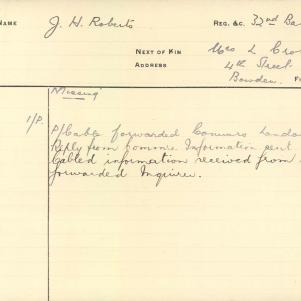 NAME J. H. Roberts REG. &C. 32nd Ba
NEXT OF KIN Mrs L Cro
ADDRESS 4th Street
Bowden.
Missing
1/P. P/Cable forwarded Commrs London
Reply from Commrs Information sent
Cabled information received from
forwarded Inquirer.